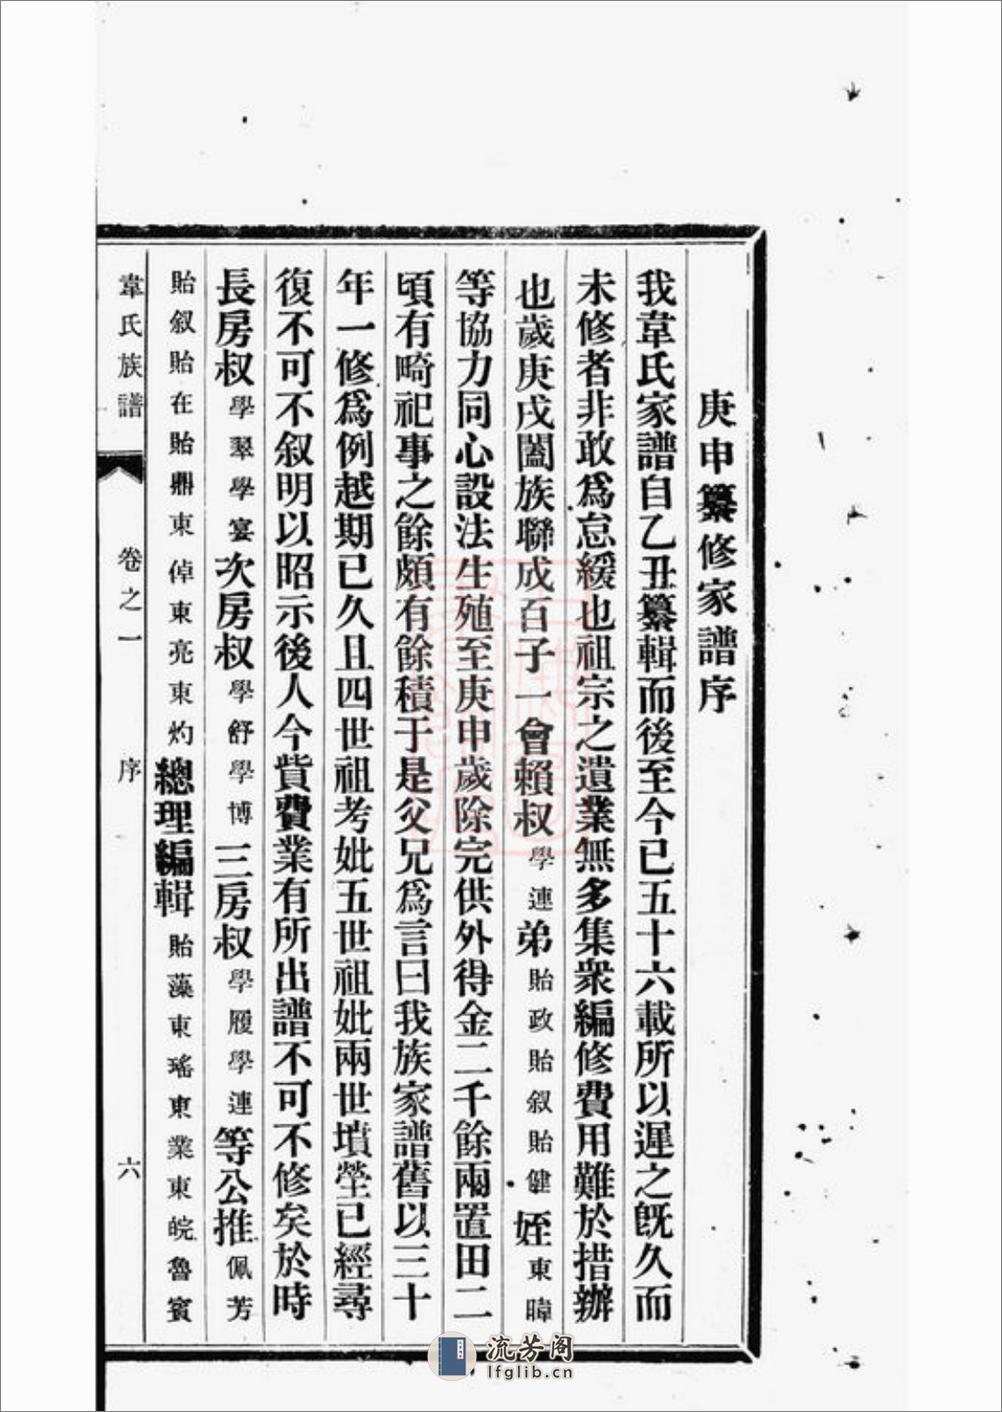 庚申纂修家譜序
我韋氏家譜自乙丑纂輯而後至今已五十六載所以遲之既久而
未修者非敢為怠緩也祖宗之遺業無多集衆編修費用難於措辦
也歲庚戌闔族聯成百子一會賴叔學連弟貽政貽叙貽健姪東暐
等協力同心設法生殖至庚申歲除完供外得金二千餘兩置田二
頃有畸祀事之餘頗有餘積于是父兄為言曰我族家譜舊以三十
年一修為例越期已久且四世祖考妣五世祖妣兩世墳塋已經尋
復不可不叙明以昭示後人今貲費業有所出譜不可不修矣於時
長房叔學翠學宴次房叔學舒學博三房叔學履學連等公推佩芳
貽叙貽在貽鼎東倬東亮東灼總理編輯貽藻東瑤東業東皖魯賓
韋氏族譜 卷之一 序 六
流芳阁
lfglib.cn